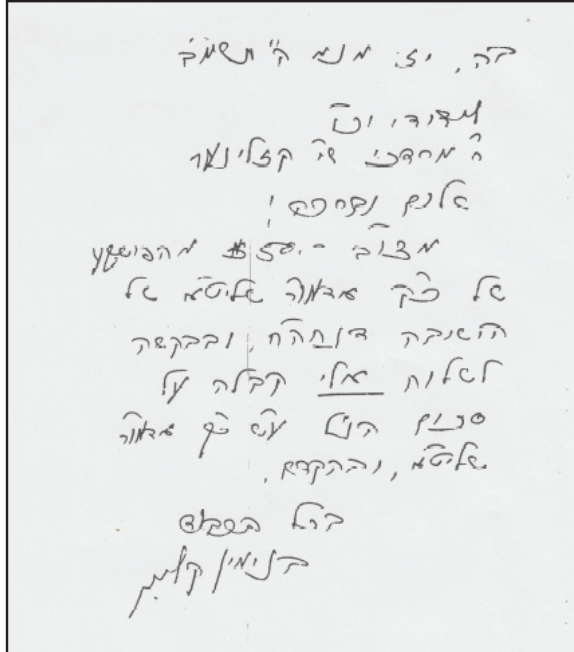 ב"ה, יז' מנ"א ה'תשמ"ב
לידידי
ר' מרדכי שי' קזלינער
שלום וברכה!
מצו"ב -.50$ מהפושקע
של כ"ק אדמו"ר שליט"א של
הישיבה דנחה"ח, ובבקשה
לשלוח אלי קבלה על
סכום הנ"ל ע"ש כ"ק אדמו"ר
שליט"א, ובהקדם.
בכל הכבוד
בנימין קליין